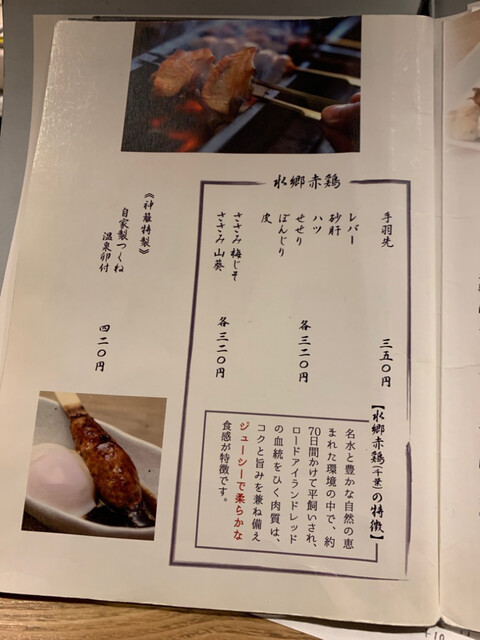 水郷赤鶏
手羽先 三五〇円
レバー
砂肝
ハツ
せせり
ぼんじり
皮
各三二〇円
ささみ梅じそ
ささみ山葵
各三二〇円
【水郷赤鶏(千葉)の特徴】
名水と豊かな自然の恵
まれた環境の中で、約
70日間かけて平飼いされ、
ロードアイランドレッド
の血統をひく肉質は、
コクと旨みを兼ね備え
ジューシーで柔らかな
食感が特徴です。
《神籬特製》
自家製つくね
温泉卵付
四二〇円